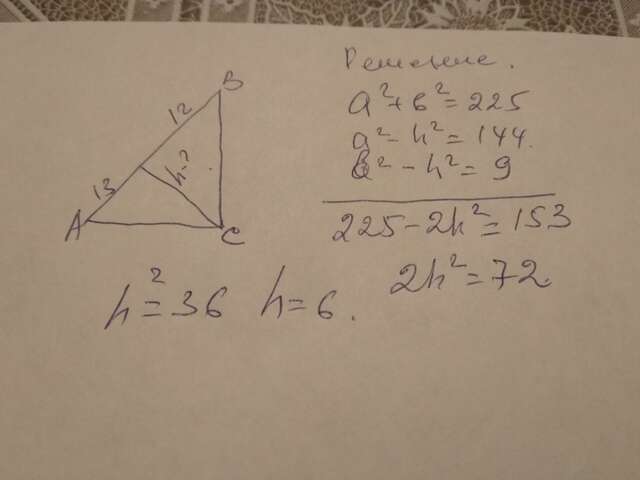 B
12
13
h-?
A
C
Решение.
a²+b²=225
a²-h²=144.
b²-h²=9
225-2h²=153
2h²=72
h²=36 h=6.